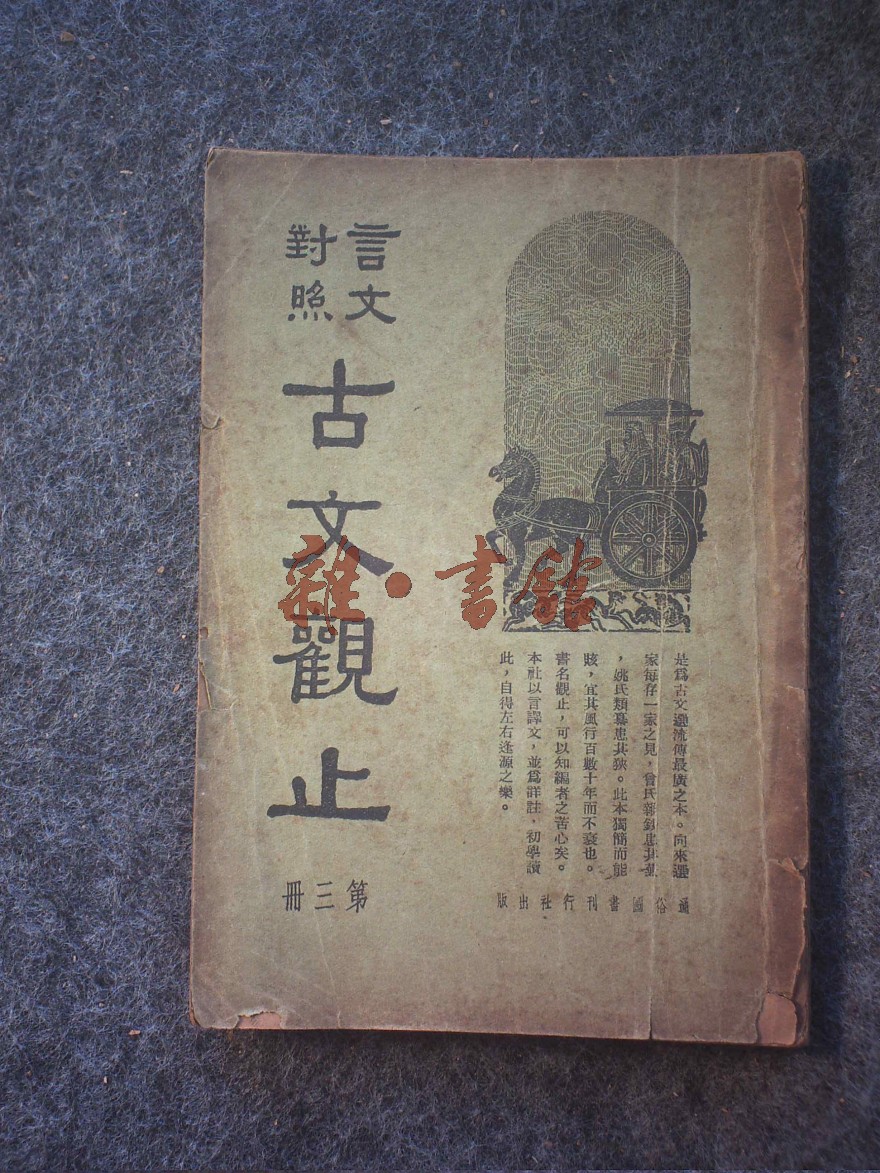 言文
對照
古文觀止
第三冊
是爲古文選流傳最廣之本。向來選
家每存一家之見,曾氏雜鈔患其
,姚氏類纂患其狹。此本獨簡而能
賅,宜其風行百數十年而不衰也。
書名觀止,可以知編者之苦心矣。
本社以言譯文,並爲詳註,初學讀
此,自得左右逢源之樂。
通俗圖書刊行社出版
雜·書館